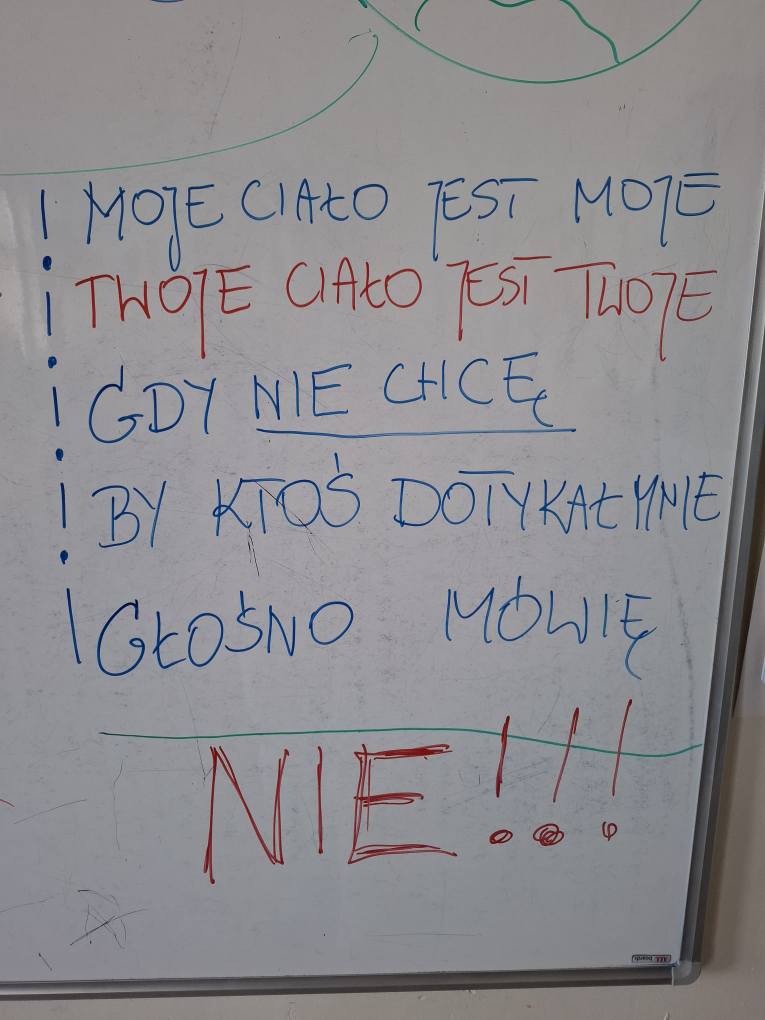 ! MOJE CIAŁO JEST MOJE
! TWOJE CIAŁO JEST TWOJE
! GDY NIE CHCĘ
! BY KTOŚ DOTYKAŁ MNIE
! GŁOŚNO MÓWIĘ
NIE!!!